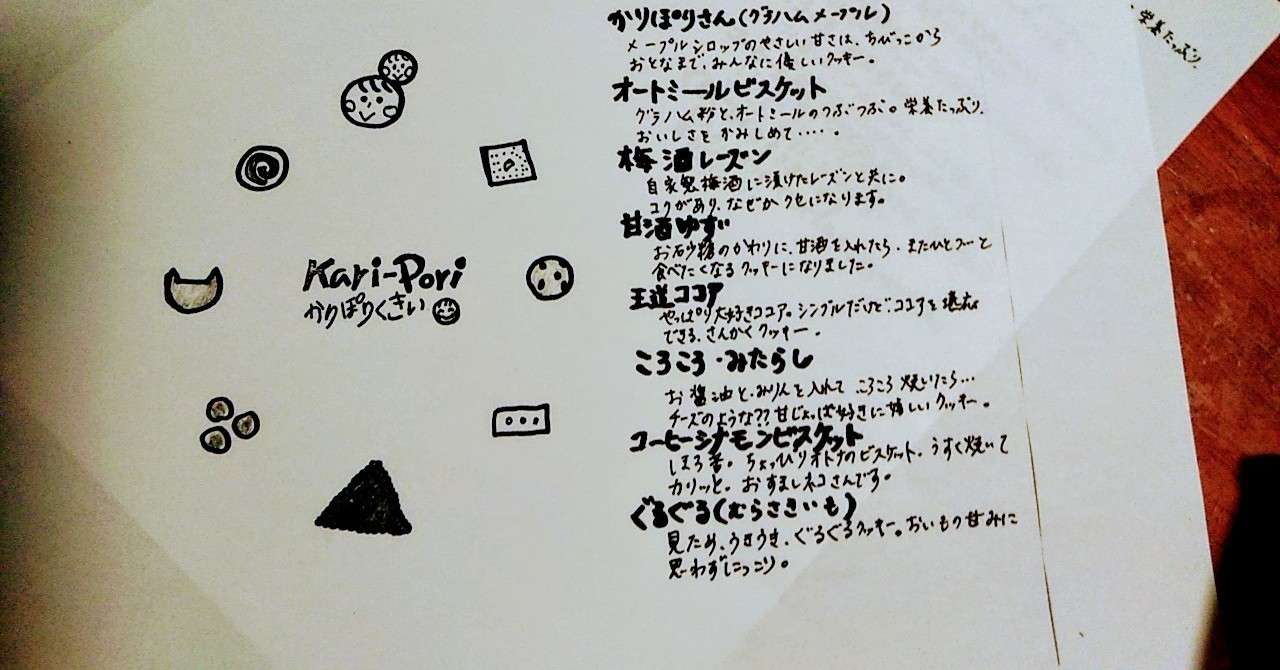 Kari-Pori
かりぽりくきい
かりぽりさん(グラハムメープル)
メープルシロップのやさしい甘さは、ちびっこから
おとなまで、みんなに優しいクッキー。
オートミールビスケット
グラハム粉と、オートミールのつぶつぶ。栄養たっぷり。
おいしさをかみしめて····。
梅酒レーズン
自家製梅酒に漬けたレーズンと共に。
コクがあり、なぜかクセになります。
甘酒ゆず
お砂糖のかわりに、甘酒を入れたら、またひとつと
食べたくなるクッキーになりました。
王道ココア
やっぱり大好きココア。シンプルだけど、ココアを堪能
できる、さんかくクッキー。
ころころ・みたらし
お醤油と、みりんを入れて ころころ焼いたら…
チーズのような??甘じょっぱ好きに嬉しいクッキー。
コーヒーシナモンビスケット
ほろ苦。ちょっぴりオトナのビスケット。うすく焼いて
カリッと。おすましネコさんです。
ぐるぐる(むらさきいも)
見ため、うきうき、ぐるぐるクッキー。おいもの甘みに
思わずにっこり。
栄養たっぷり。